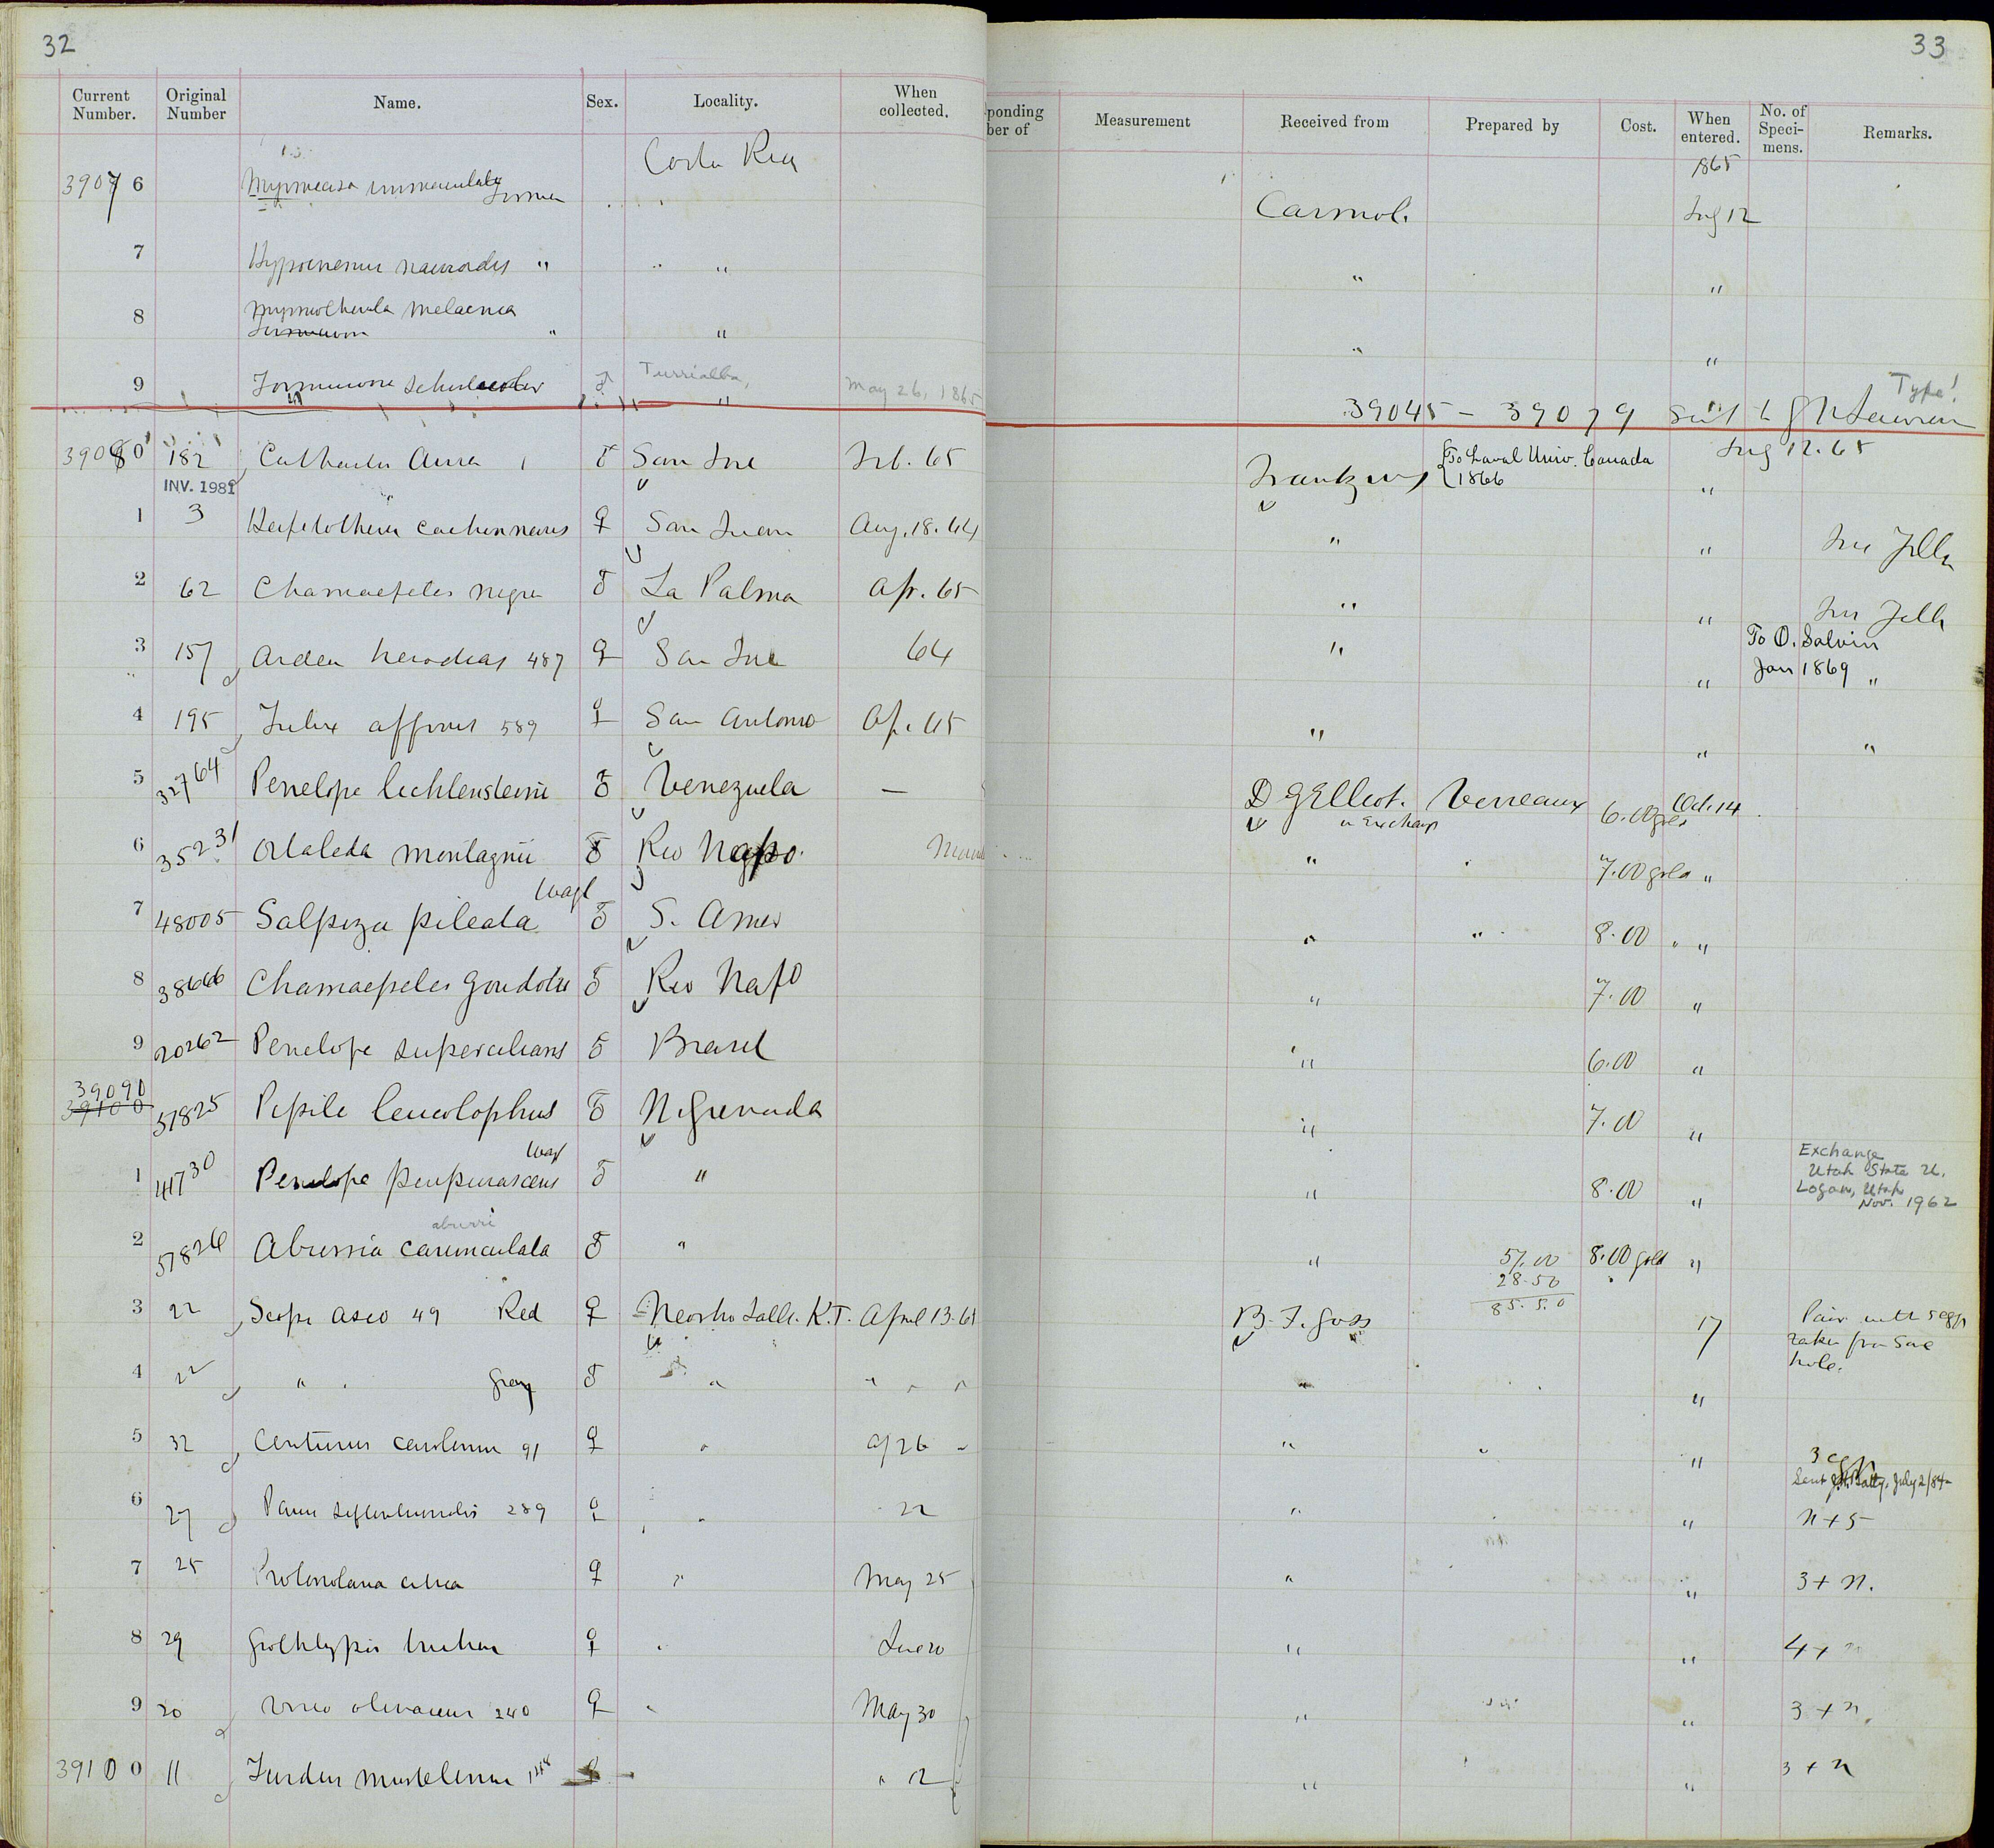 32
33
Current Number. Original Number Name. Sex. Locality. When collected.
ponding ber of Measurement Received from Prepared by Cost. When entered. No. of Speci-mens. Remarks.
Costa Rica 1865
39076 Myrmeciza immaculata Carmiol. Aug 12
7 " " " " "
8 Myrmotherula melaena
" " " "
9 ♂ Turrialba, " May 26, 1865 Type!
39045 - 39079 sent to G N Lawrence
39080 182 Cathartes Aura 1 ♂ San Jose Feb. 65 Frantzius {To Laval Univ. Canada 1866 Aug 12. 65
INV. 1981 "
1 3 Herpetotheres cachinnans ♀ San Juan Aug. 18. 64 " "
2 62 Chamaepetes niger ♂ La Palma Apr. 65 " "
3 157 Ardea herodias 487 ♀ San Jose 64 " " To O. Salvin Jan 1869 "
4 195 Fulix affinis 589 ♀ San Antonio Ap. 65 " " "
5 32764 Penelope lichtensteinii ♂ Venezuela — D G Elliot. in Exchange Verreaux 6.00 gold Oct. 14
6 35231 Ortalida montagnii ♂ Rio Napo. " 7.00 gold "
7 48005 Salpiza pileata Wagl ♂ S. Amer " " 8.00 " "
8 38666 Chamaepetes goudotii ♂ Rio Napo " 7.00 "
9 20262 Penelope superciliaris ♂ Brazil " 6.00 "
39090
39100 51825 Pipile leucolophus ♂ N. Grenada " 7.00 "
1 41730 Penelope purpurascens Wagl ♂ " " 8.00 " Exchange
Utah State U.
Logan, Utah
Nov. 1962
aburri
2 51826 Aburria carunculata ♂ " " 57.00 8.00 gold "
28.50
85.50
3 22 Scops asio 49 Red ♀ Neosho Falls. K.T. April 13. 65 B. F. Goss 17 Pair with 5 eggs
taken from same
hole.
4 22 " Gray ♂ " " " " " "
5 32 Centurus carolinus 91 ♀ " 26 " " " 3 eggs
Sent July 2/84
6 27 Parus septentrionalis 289 ♀ " 22 " " n + 5
7 25 Protonotaria citrea ♀ " May 25 " " 3 + n.
8 29 Geothlypis trichas ♀ " June 20 " " 4 + n
9 20 Vireo olivaceus 240 ♀ " May 30 " " 3 + n.
39100 11 Turdus mustelinus 148 " 12 " " 3 + n